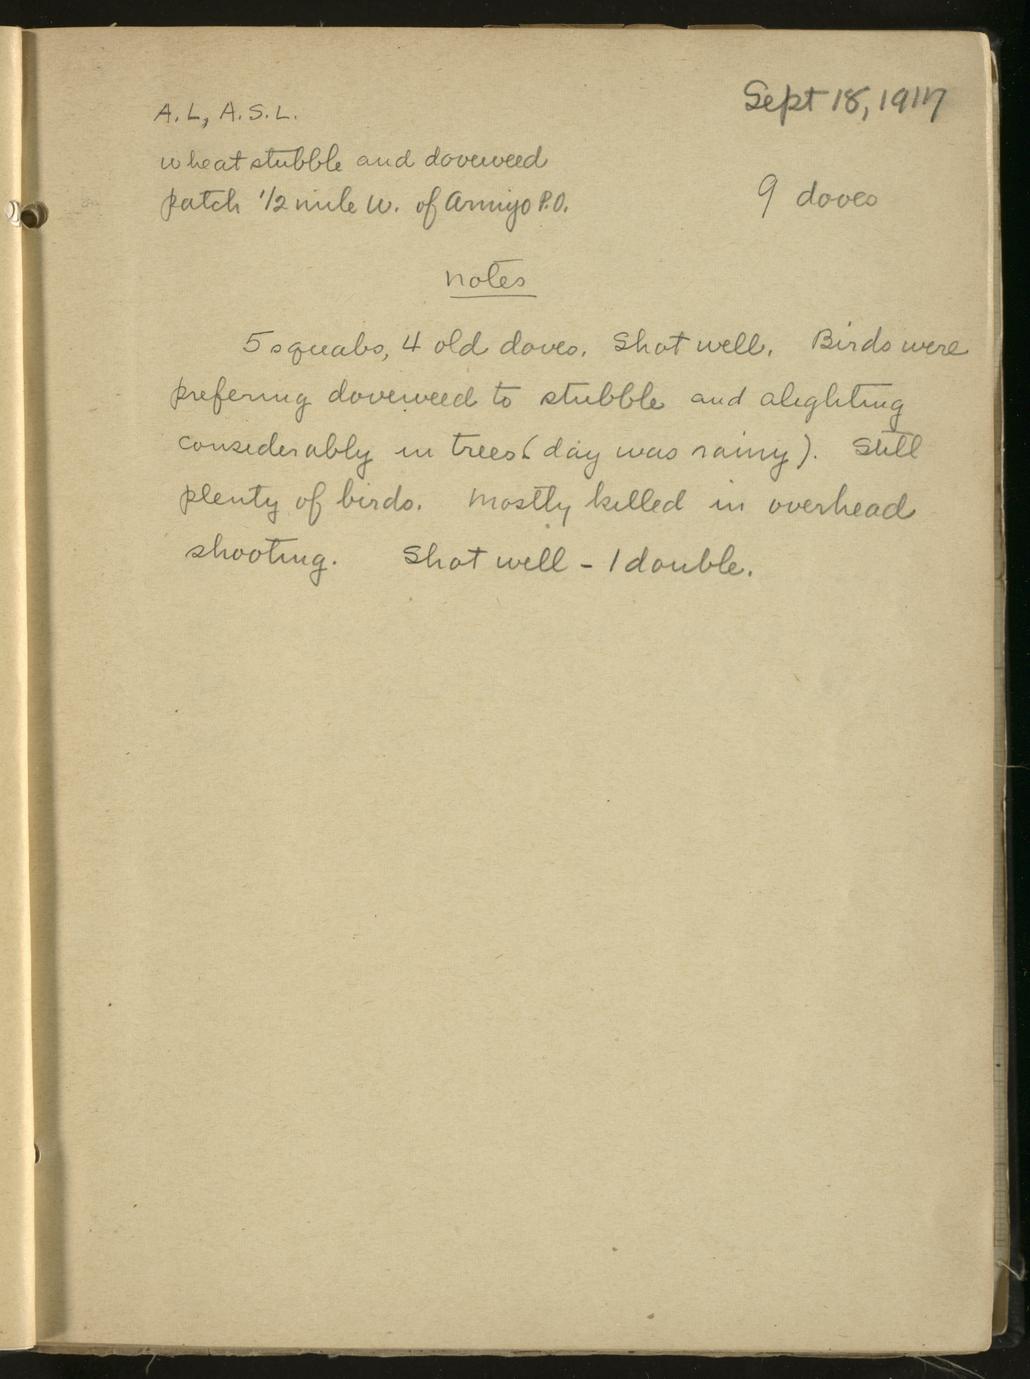 Sept 18, 1917
A. L, A. S. L.
wheat stubble and doveweed
patch 1/2 mile W. of Armijo P.O.
9 doves
notes
5 squabs, 4 old doves. Shot well. Birds were
prefering doveweed to stubble and alighting
considerably in trees (day was rainy). Still
plenty of birds. Mostly killed in overhead
shooting. Shot well - 1 double.